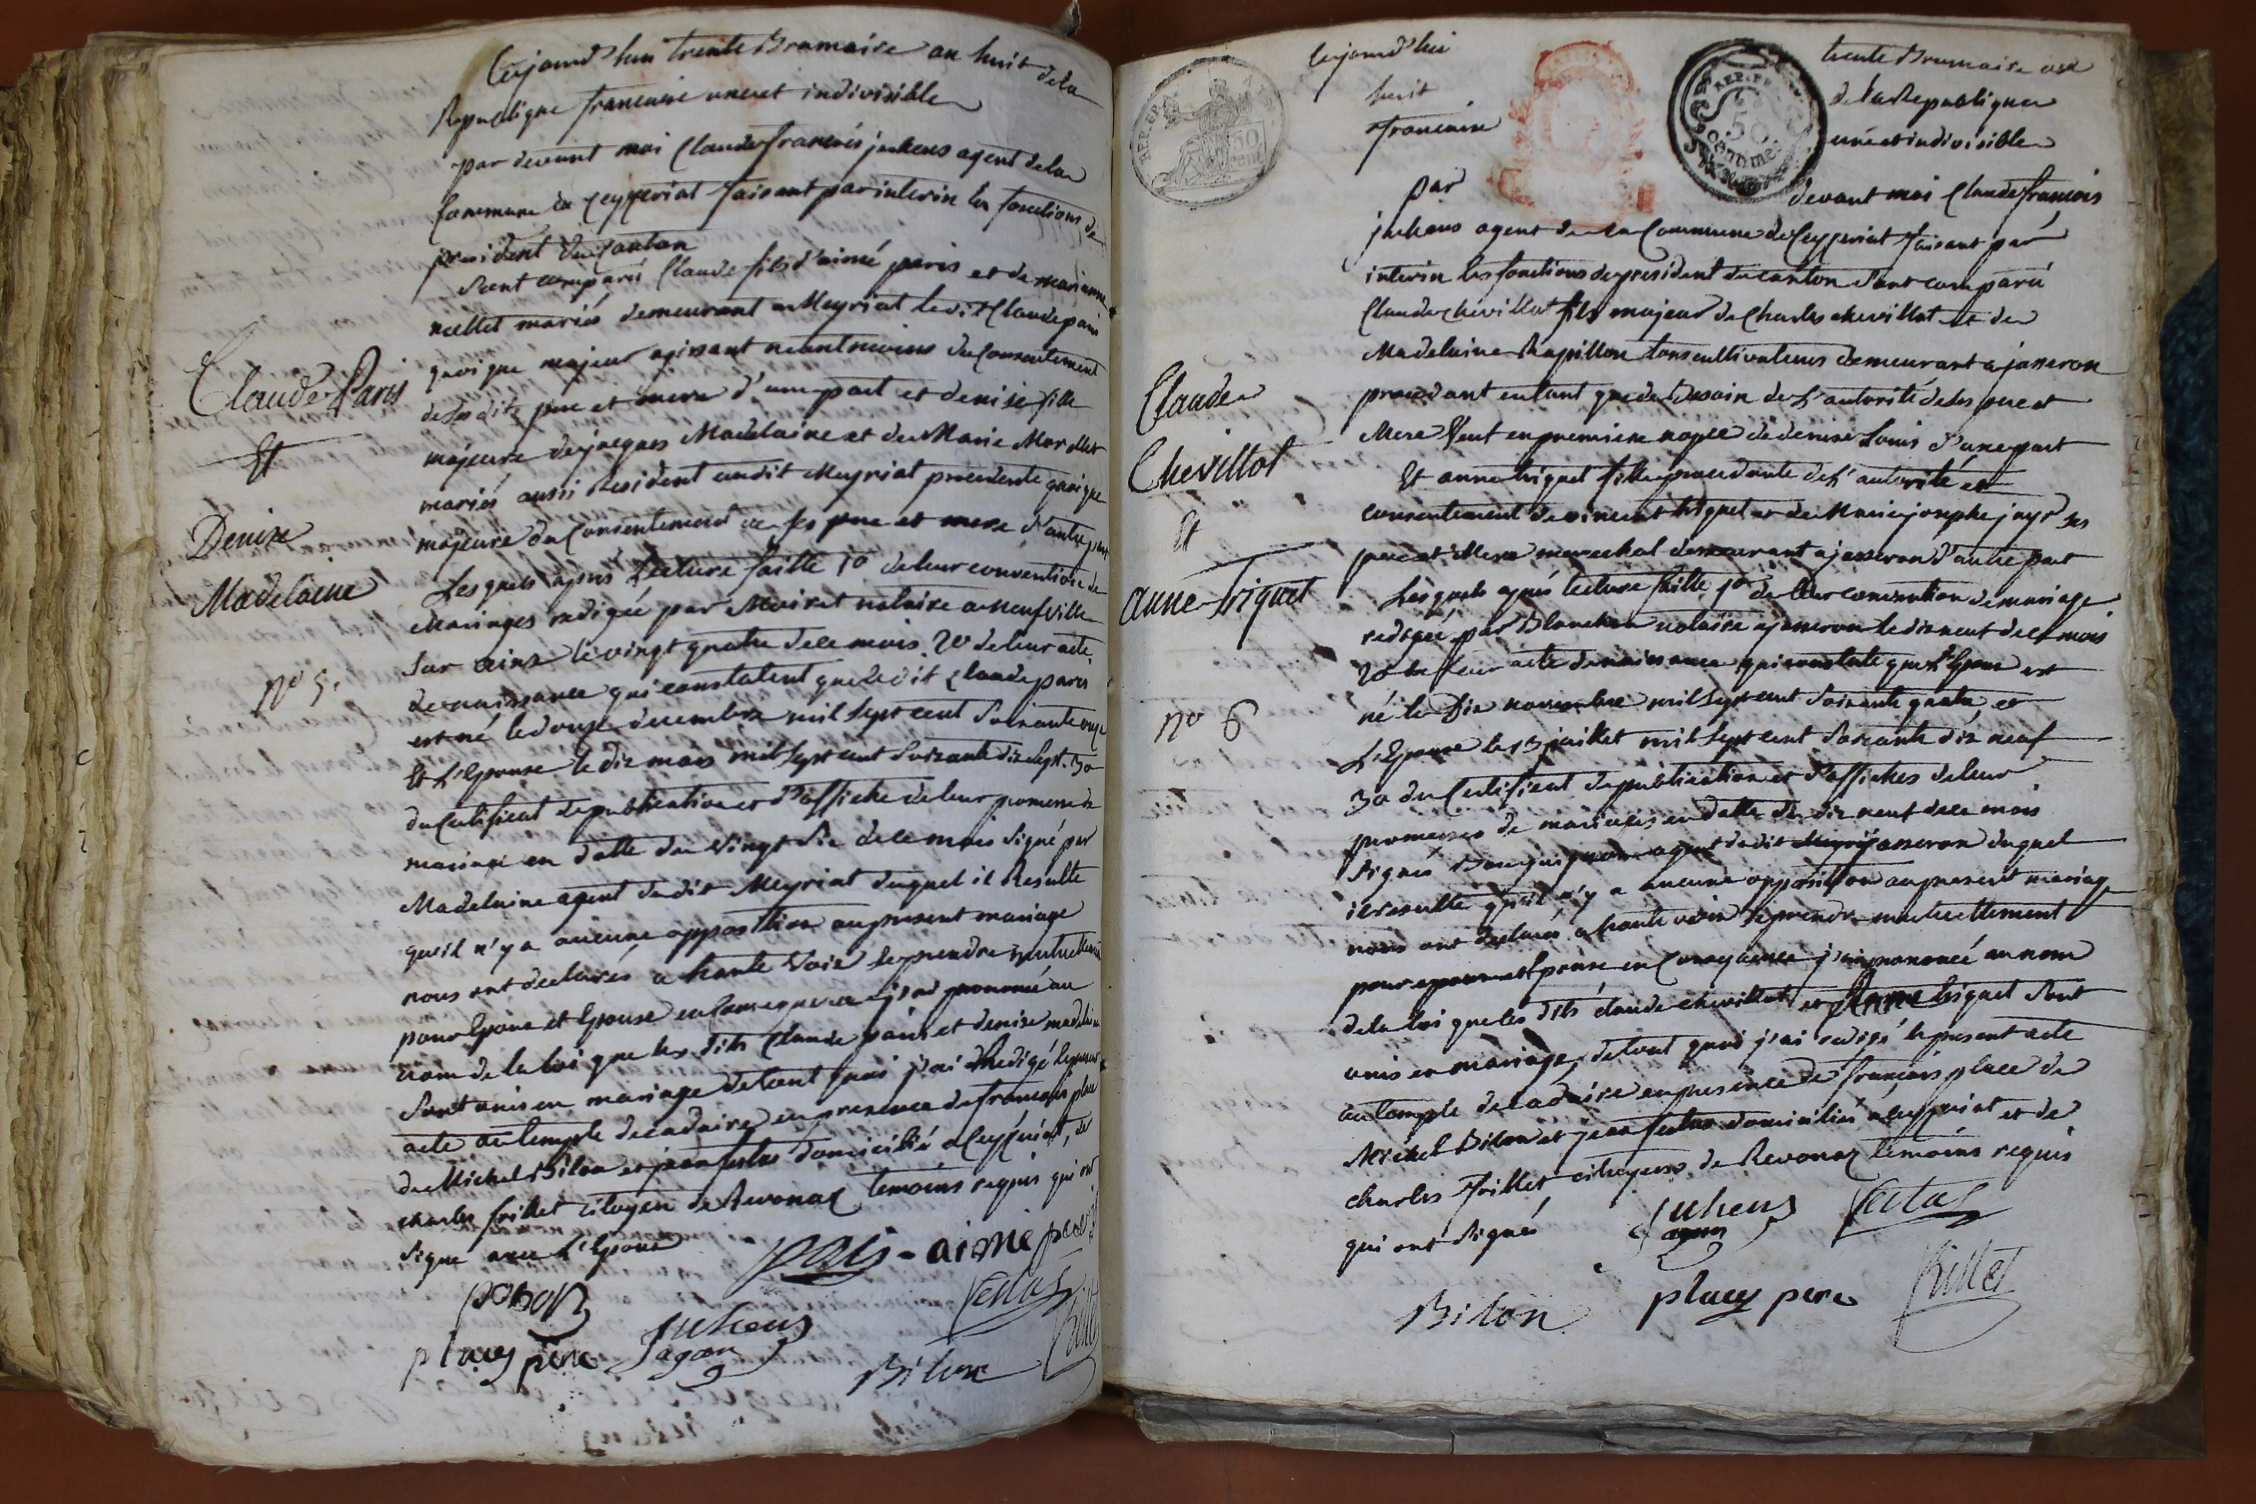 Cejourd'hui trente Brumaire an huit de la
Republique francaise une et indivisible
par devant moi Claude francois juhens agent de la
Commune de Ceyzeriat faisant par interin les fonctions de
president du Canton
Sont comparu Claude fils d'aimé paris et de marianne
mariés demeurant a Meyriat ledit Claude paris
quoique majeur agissant neantmoins du Consentement
desdits pere et mere d'une part et denise fille
majeure de jacques Madelaine et de Marie
mariés aussi Resident audit Meyriat procedente quoique
majeure du Consentement de ses pere et mere d'autre part
Lesquels après Lecture faitte 1o de leur convention de
Mariages redigée par Moiret notaire a neufville
Sur ains le vingt quatre de ce mois. 2o de leur acte
de naissance qui constatent que ledit Claude paris
est né le douze decembre mil sept cent Soixante onze
Et L'Epouse le dix mars mil sept cent Soixante dix Sept. 3o
du Certificat de publication et d'affiche de leur promesse de
mariage en datte du vingt Six de ce mois Signé par
Madelaine agent dudit Meyriat duquel il Resulte
qu'il n'y a aucune opposition au present mariage
nous ont declarés a haute Voix se prendre mutuellement
pour Epoux et Epouse en Consequence j'ai prononcé au
nom de la loi que les dits Claude paris et denise madelaine
Sont unis en mariage de tout quoi j'ai Redigé le present
acte au temple decadaire en presence de francois place
de Michel Bilon et jean domicilié a Ceyzeriat, de
charles frillet citoyen de Revonaz temoins requis qui ont
Signé avec L'Epoux
Claude Paris
Et
Denise
Madelaine
No 5.
paris - aimé paris
juhens
agent
place pere
Bilon
Cejourd'hui trente Brumaire an
huit de la Republique
francaise une et indivisible
par devant moi Claude francois
juhens agent de la Commune de Ceyzeriat faisant par
interin les fonctions de president du canton Sont comparu
Claude Chevillot fils majeur de Charles chevillot et de
Madelaine Rapillon tous cultivateurs demeurant a jasseron
procedant en tant que de Besoin de L'autorité de ses pere et
Mere Veuf en premiere nopce de denise Louis d'une part
Et anne triquet fille procedante de L'autorité et
consentement de vincent triquet et de Marie josephe jayr ses
pere et Mere marechal demeurant a jasseron d'autre part
Lesquels après lecture faitte 1o de leur convention de mariage
redigée par notaire a jasseron le dix neuf de ce mois
2o de leur acte de naissance qui constate que L'Epoux est
né le Dix novembre mil sept cent Soixante quatre et
L'Epouse le 13 juillet mil sept cent Soixante dix neuf
3o du Certificat de publication et d'affiches de leur
promesses de mariages en datte du dix neuf de ce mois
Signés agent dudit jasseron duquel
il resulte qu'il n'y a aucune opposition au present mariage
nous ont declarés a haute voix se prendre mutuellement
pour epoux et Epouse en Consequence j'ai prononcé au nom
de la loi que les dits claude chevillot et Anne triquet Sont
unis en mariage, de tout quoi j'ai redigé le present acte
au temple decadaire en presence de francois place de
Michel Bilon et jean domiciliés a Ceyzeriat et de
charles frillet citoyens de Revonaz temoins requis
qui ont Signés
Claude
Chevillot
Et
anne triquet
No 6
juhens
agent
Bilon place pere frillet
REP. FRA.
50 cent.
REP. FRA.
50 centimes